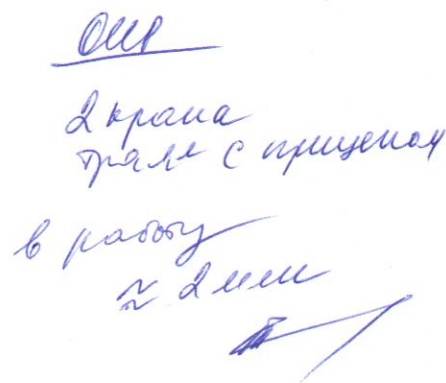 2 крана
трал с прицепом
в работу
≈ 2 млн